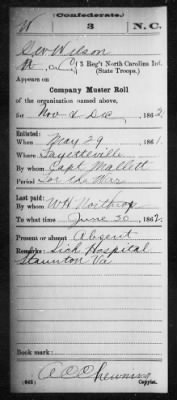 (Confederate.)
W 3 N.C.
S W Wilson
Co. C, 3 Reg't North Carolina Inf.
(State Troops.)
Appears on
Company Muster Roll
of the organization named above,
for Nov & Dec, 1862.
Enlisted:
When May 29, 1861.
Where Fayetteville
By whom Capt Mallett
Period For the War
Last paid:
By whom W H Northrop
To what time June 30, 1862.
Present or absent Absent
Remarks: Sick Hospital
Staunton Va
Book mark:
(642) Copyist.